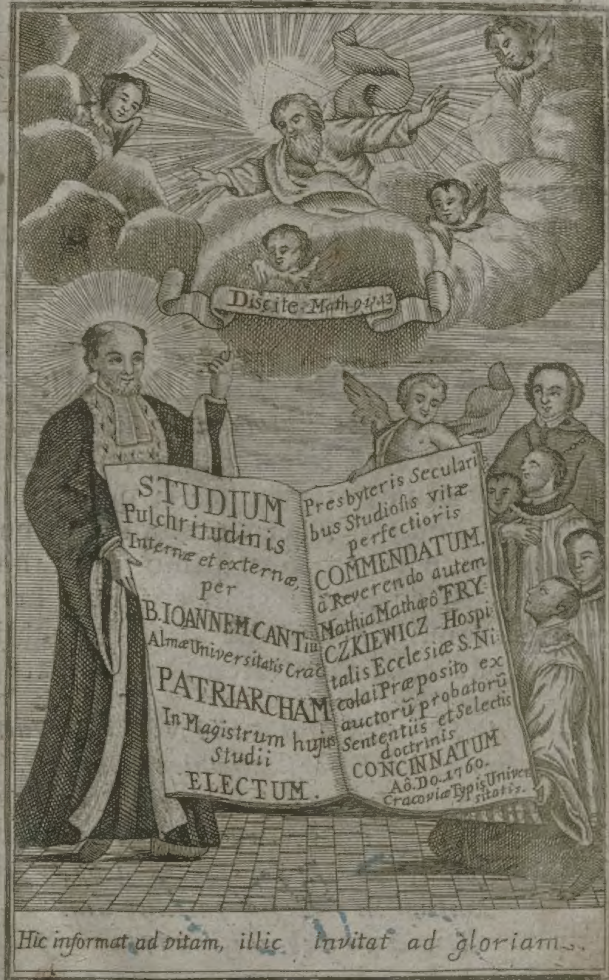 Discite. Math. 9. v. 13
STUDIUM
Pulchritudinis
Internæ et externæ,
per
B. IOANNEM CANTiū
Almæ Universitatis Crac
PATRIARCHAM
In Magistrum hujus
Studii
ELECTUM.
Presbyteris Seculari
bus Studiosis vitæ
perfectioris
COMMENDATUM.
â Reverendo autem
Mathia Mathæô FRY-
CZKIEWICZ Hospi
talis Ecclesiæ S. Ni
colai Præposito ex
auctorū probatorū
Sententiis et Selectis
doctrinis
CONCINNATUM
Aô. Do. 1760.
Cracoviæ Typis Univer
sitatis.
Hic informat ad vitam, illic invitat ad gloriam.